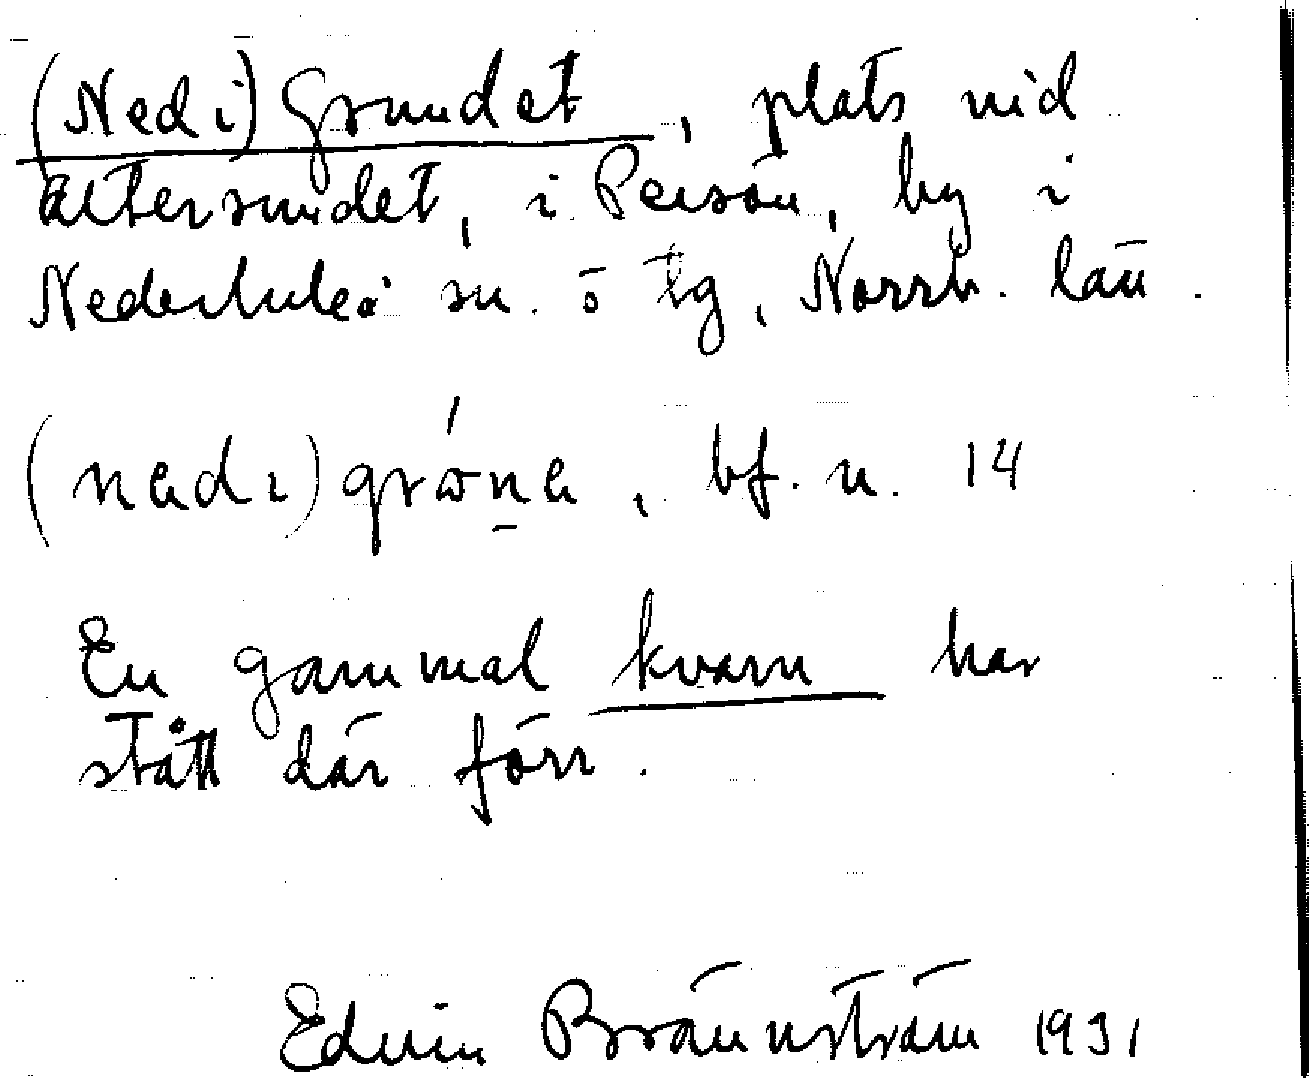 (Ned i) Grundet, plats vid
Altersundet, i Persön, by i
Nederluleå sn. ö tg, Norrb. län.
(nedɩ) grωn̠e, bf. n. 14
En gammal kvarn har
stått där förr.
Edvin Brännström 1931